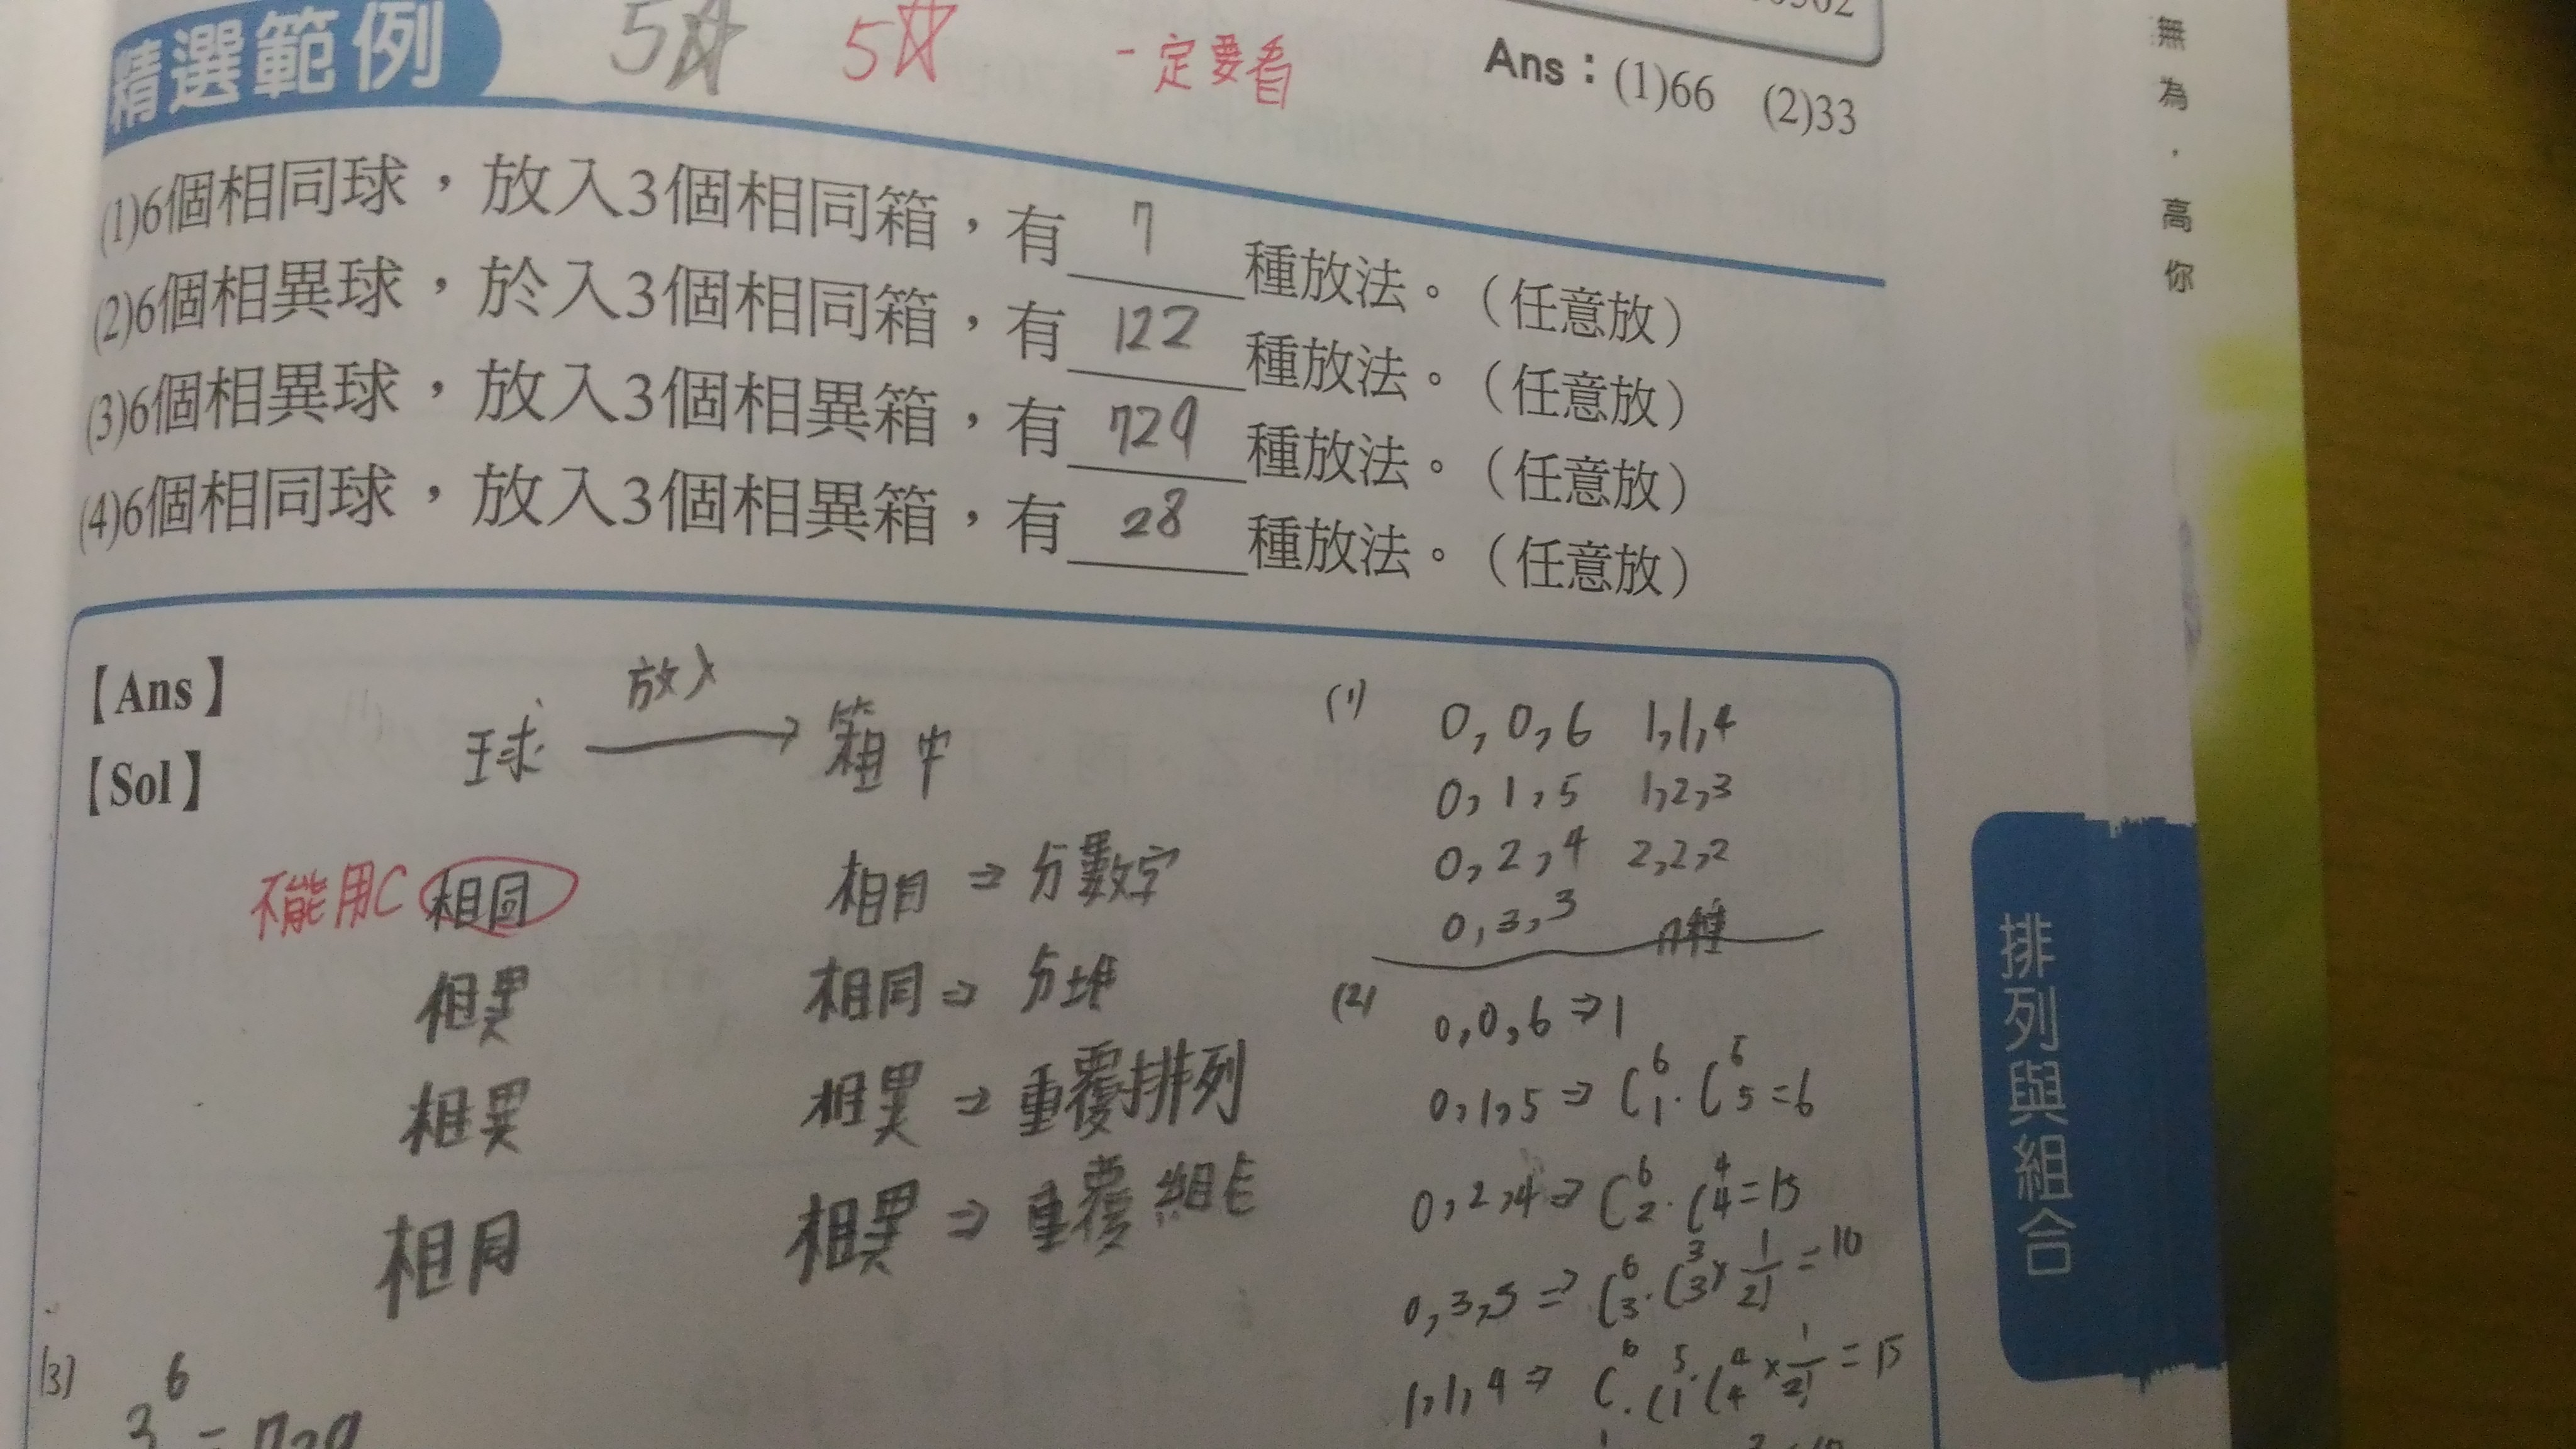 精選範例 5☆ 5☆ 一定要看
Ans：(1)66 (2)33
(1)6個相同球，放入3個相同箱，有 7 種放法。（任意放）
(2)6個相異球，於入3個相同箱，有 122 種放法。（任意放）
(3)6個相異球，放入3個相異箱，有 729 種放法。（任意放）
(4)6個相同球，放入3個相異箱，有 28 種放法。（任意放）
【Ans】
【Sol】
球 放入 → 箱中
不能用C 相同 相同 ⇒ 分數字
相異 相同 ⇒ 分堆
相異 相異 ⇒ 重覆排列
相同 相異 ⇒ 重覆組合
(3) 3^6 = 729
(1) 0, 0, 6 1, 1, 4
0, 1, 5 1, 2, 3
0, 2, 4 2, 2, 2
0, 3, 3 7種
(2) 0, 0, 6 ⇒ 1
0, 1, 5 ⇒ C^6_1 · C^5_5 = 6
0, 2, 4 ⇒ C^6_2 · C^4_4 = 15
0, 3, 3 ⇒ C^6_3 · C^3_3 × 1/2! = 10
1, 1, 4 ⇒ C^6 · C^5_1 · C^4_4 × 1/2! = 15
無為，高你
排列與組合